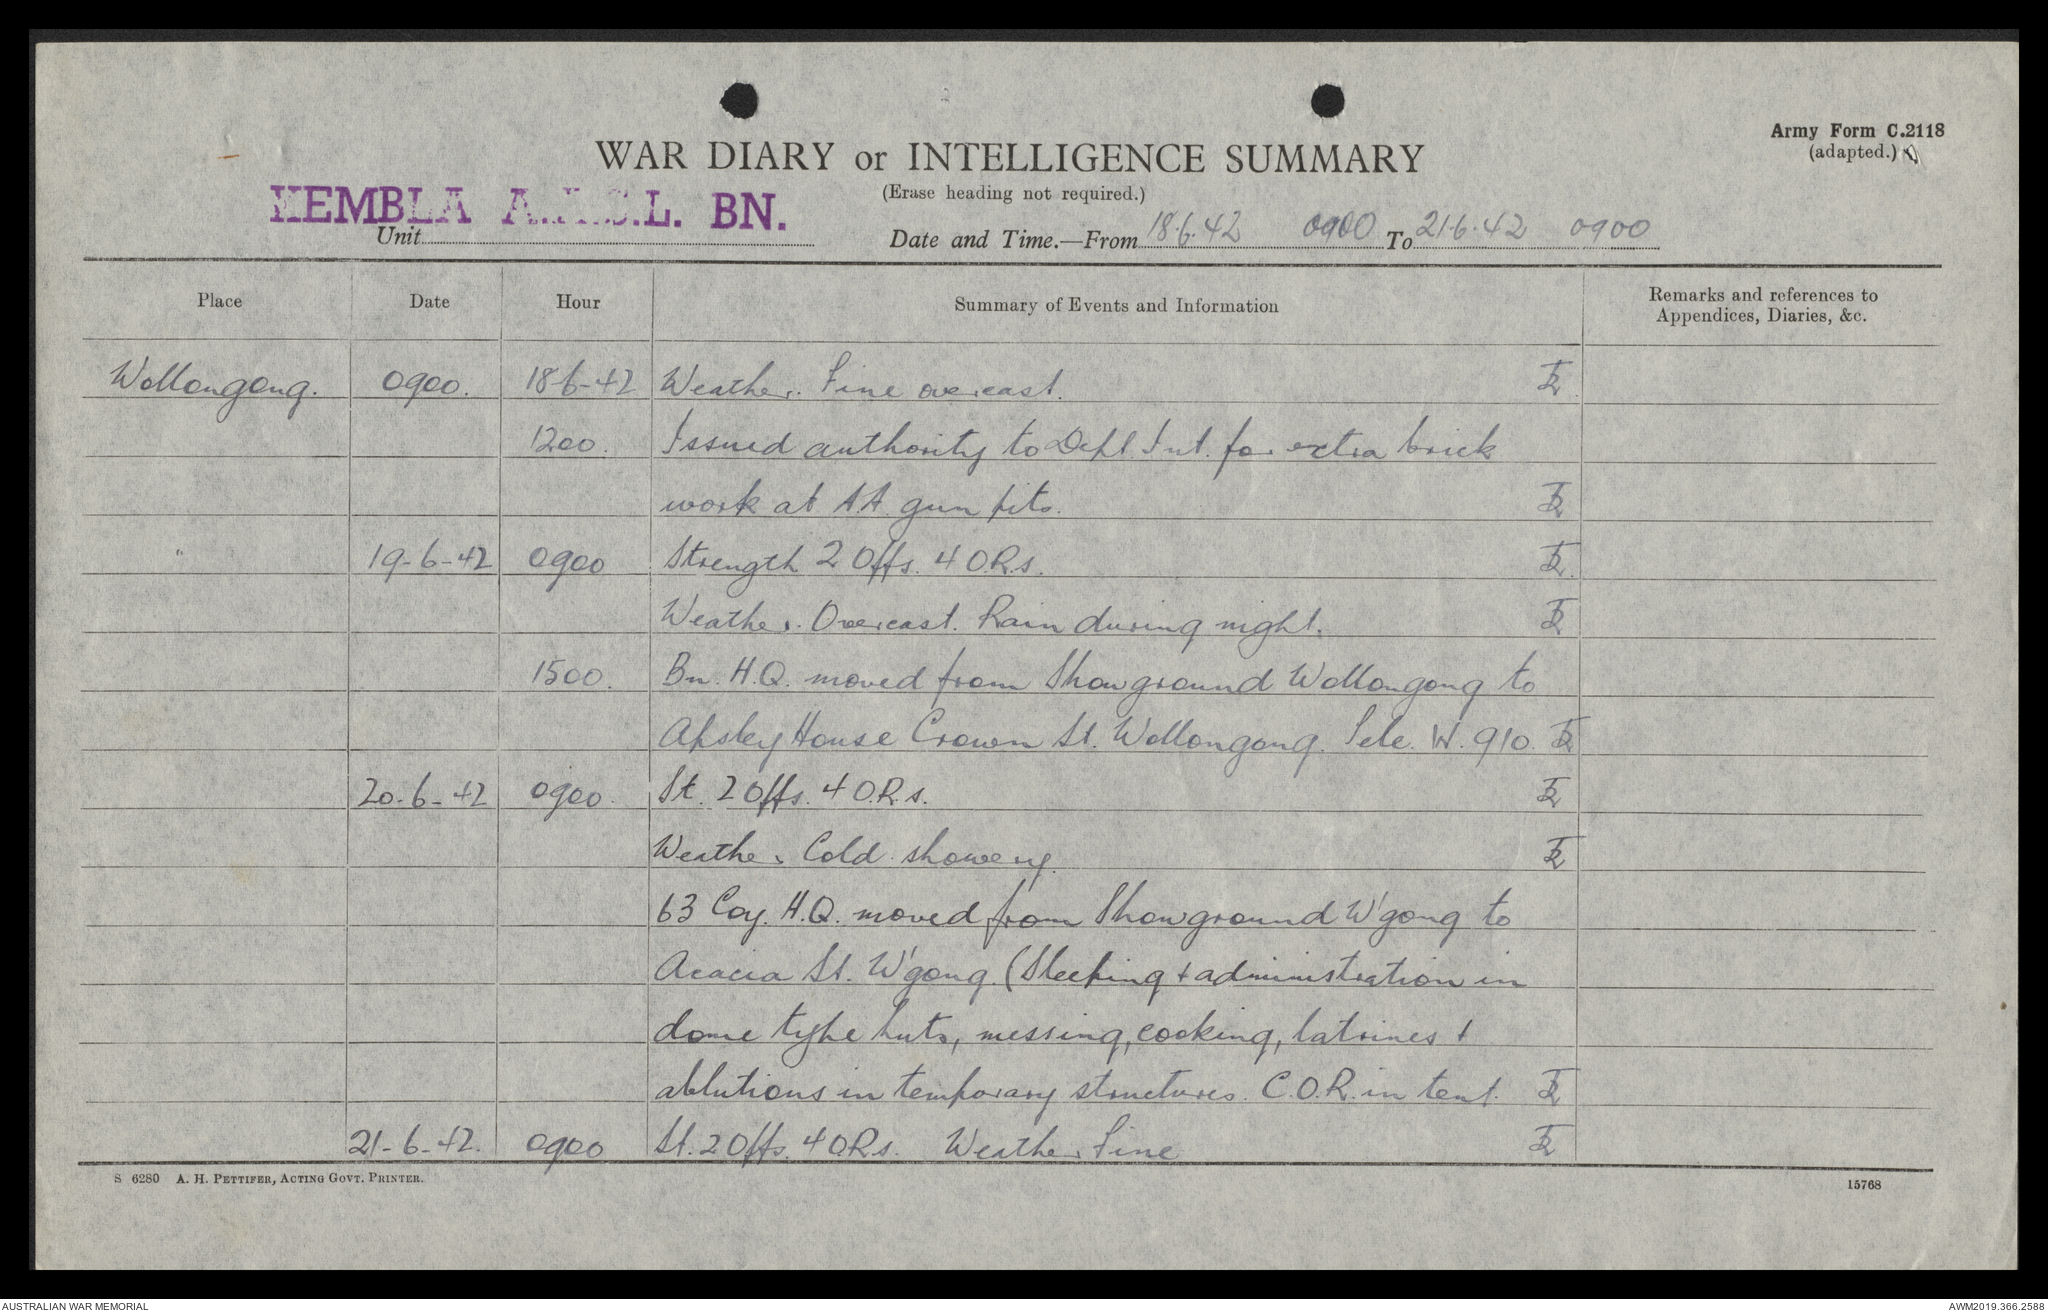 Army Form C.2118
(adapted.)
WAR DIARY or INTELLIGENCE SUMMARY
(Erase heading not required.)
KEMBLA A.A.S.L. BN.
Unit
Date and Time.—From 18.6.42 0900 To 21.6.42 0900
Place Date Hour Summary of Events and Information Remarks and references to Appendices, Diaries, &c.
Wollongong. 0900. 18-6-42 Weather. Fine overcast.
1200. Issued authority to Dept. Int. for extra brick
work at AA gun pits.
" 19-6-42 0900 Strength 2 Offs. 4 O.R.s.
Weather. Overcast. Rain during night.
1500. Bn. H.Q. moved from Showground Wollongong to
Apsley House Crown St. Wollongong. Tele. W. 910.
20-6-42 0900. St. 2 Offs. 4 O.R.s.
Weather Cold showery
63 Coy. H.Q. moved from Showground W'gong to
Acacia St. W'gong. (Sleeping + administration in
dome type huts, messing, cooking, latrines +
ablutions in temporary structures. C.O.R. in tent.
21-6-42. 0900 St. 2 Offs. 4 O.R.s. Weather Fine
S 6280 A. H. PETTIFER, ACTING GOVT. PRINTER.
15768
AUSTRALIAN WAR MEMORIAL
AWM2019.366.2588